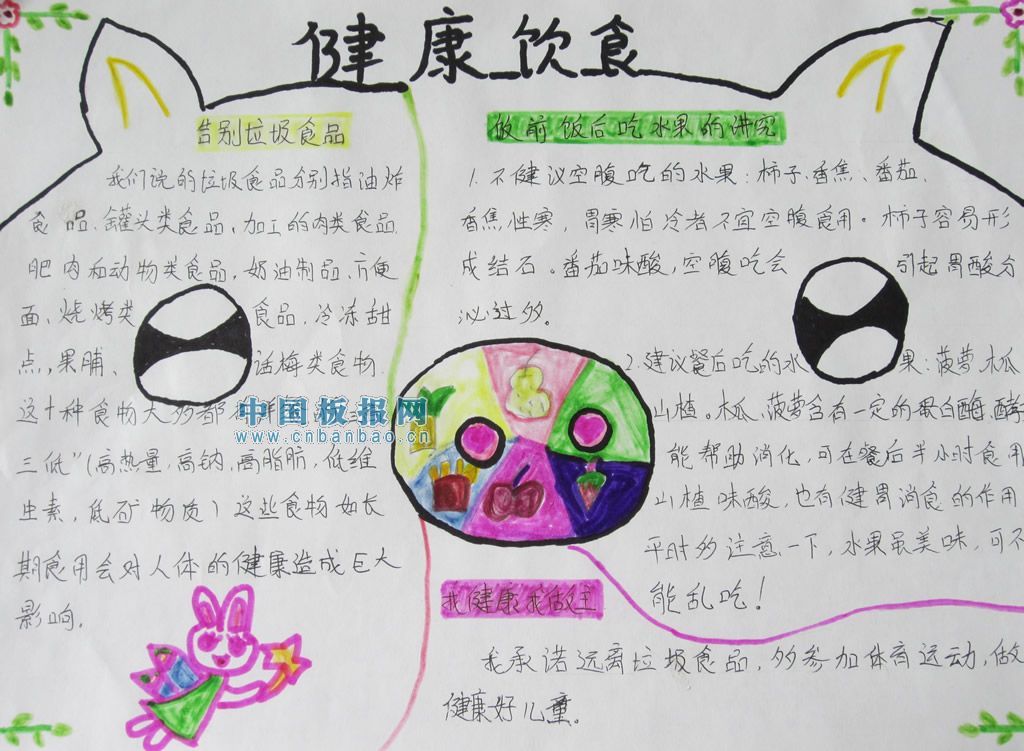 健康饮食
告别垃圾食品
我们说的垃圾食品分别指油炸
食品、罐头类食品、加工的肉类食品
肥肉和动物类食品，奶油制品、方便
面、烧烤类食品，冷冻甜
点，果脯、话梅类食物
这十种食物大多都
三低”（高热量，高钠，高脂肪，低维
生素，低矿物质）这些食物如长
期食用会对人体的健康造成巨大
影响.
饭前饭后吃水果的讲究
1. 不健议空腹吃的水果：柿子、香焦、番茄、
香焦性寒，胃寒怕冷者不宜空腹食用。柿子容易形
成结石。番茄味酸，空腹吃会引起胃酸分
泌过多。
2.建议餐后吃的水果：菠萝、木瓜
山楂。木瓜、菠萝含有一定的蛋白酶、酵
能帮助消化，可在餐后半小时食用
山楂味酸，也有健胃消食的作用
平时多注意一下，水果虽美味，可不
能乱吃！
我健康我做主
我承诺远离垃圾食品，多参加体育运动，做
健康好儿童。
中国板报网
www.cnbanbao.cn